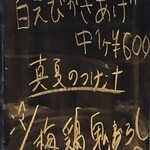 白えびかきあげ
中1ケ¥600
真夏のつけ汁
冷/梅鶏鬼おろし